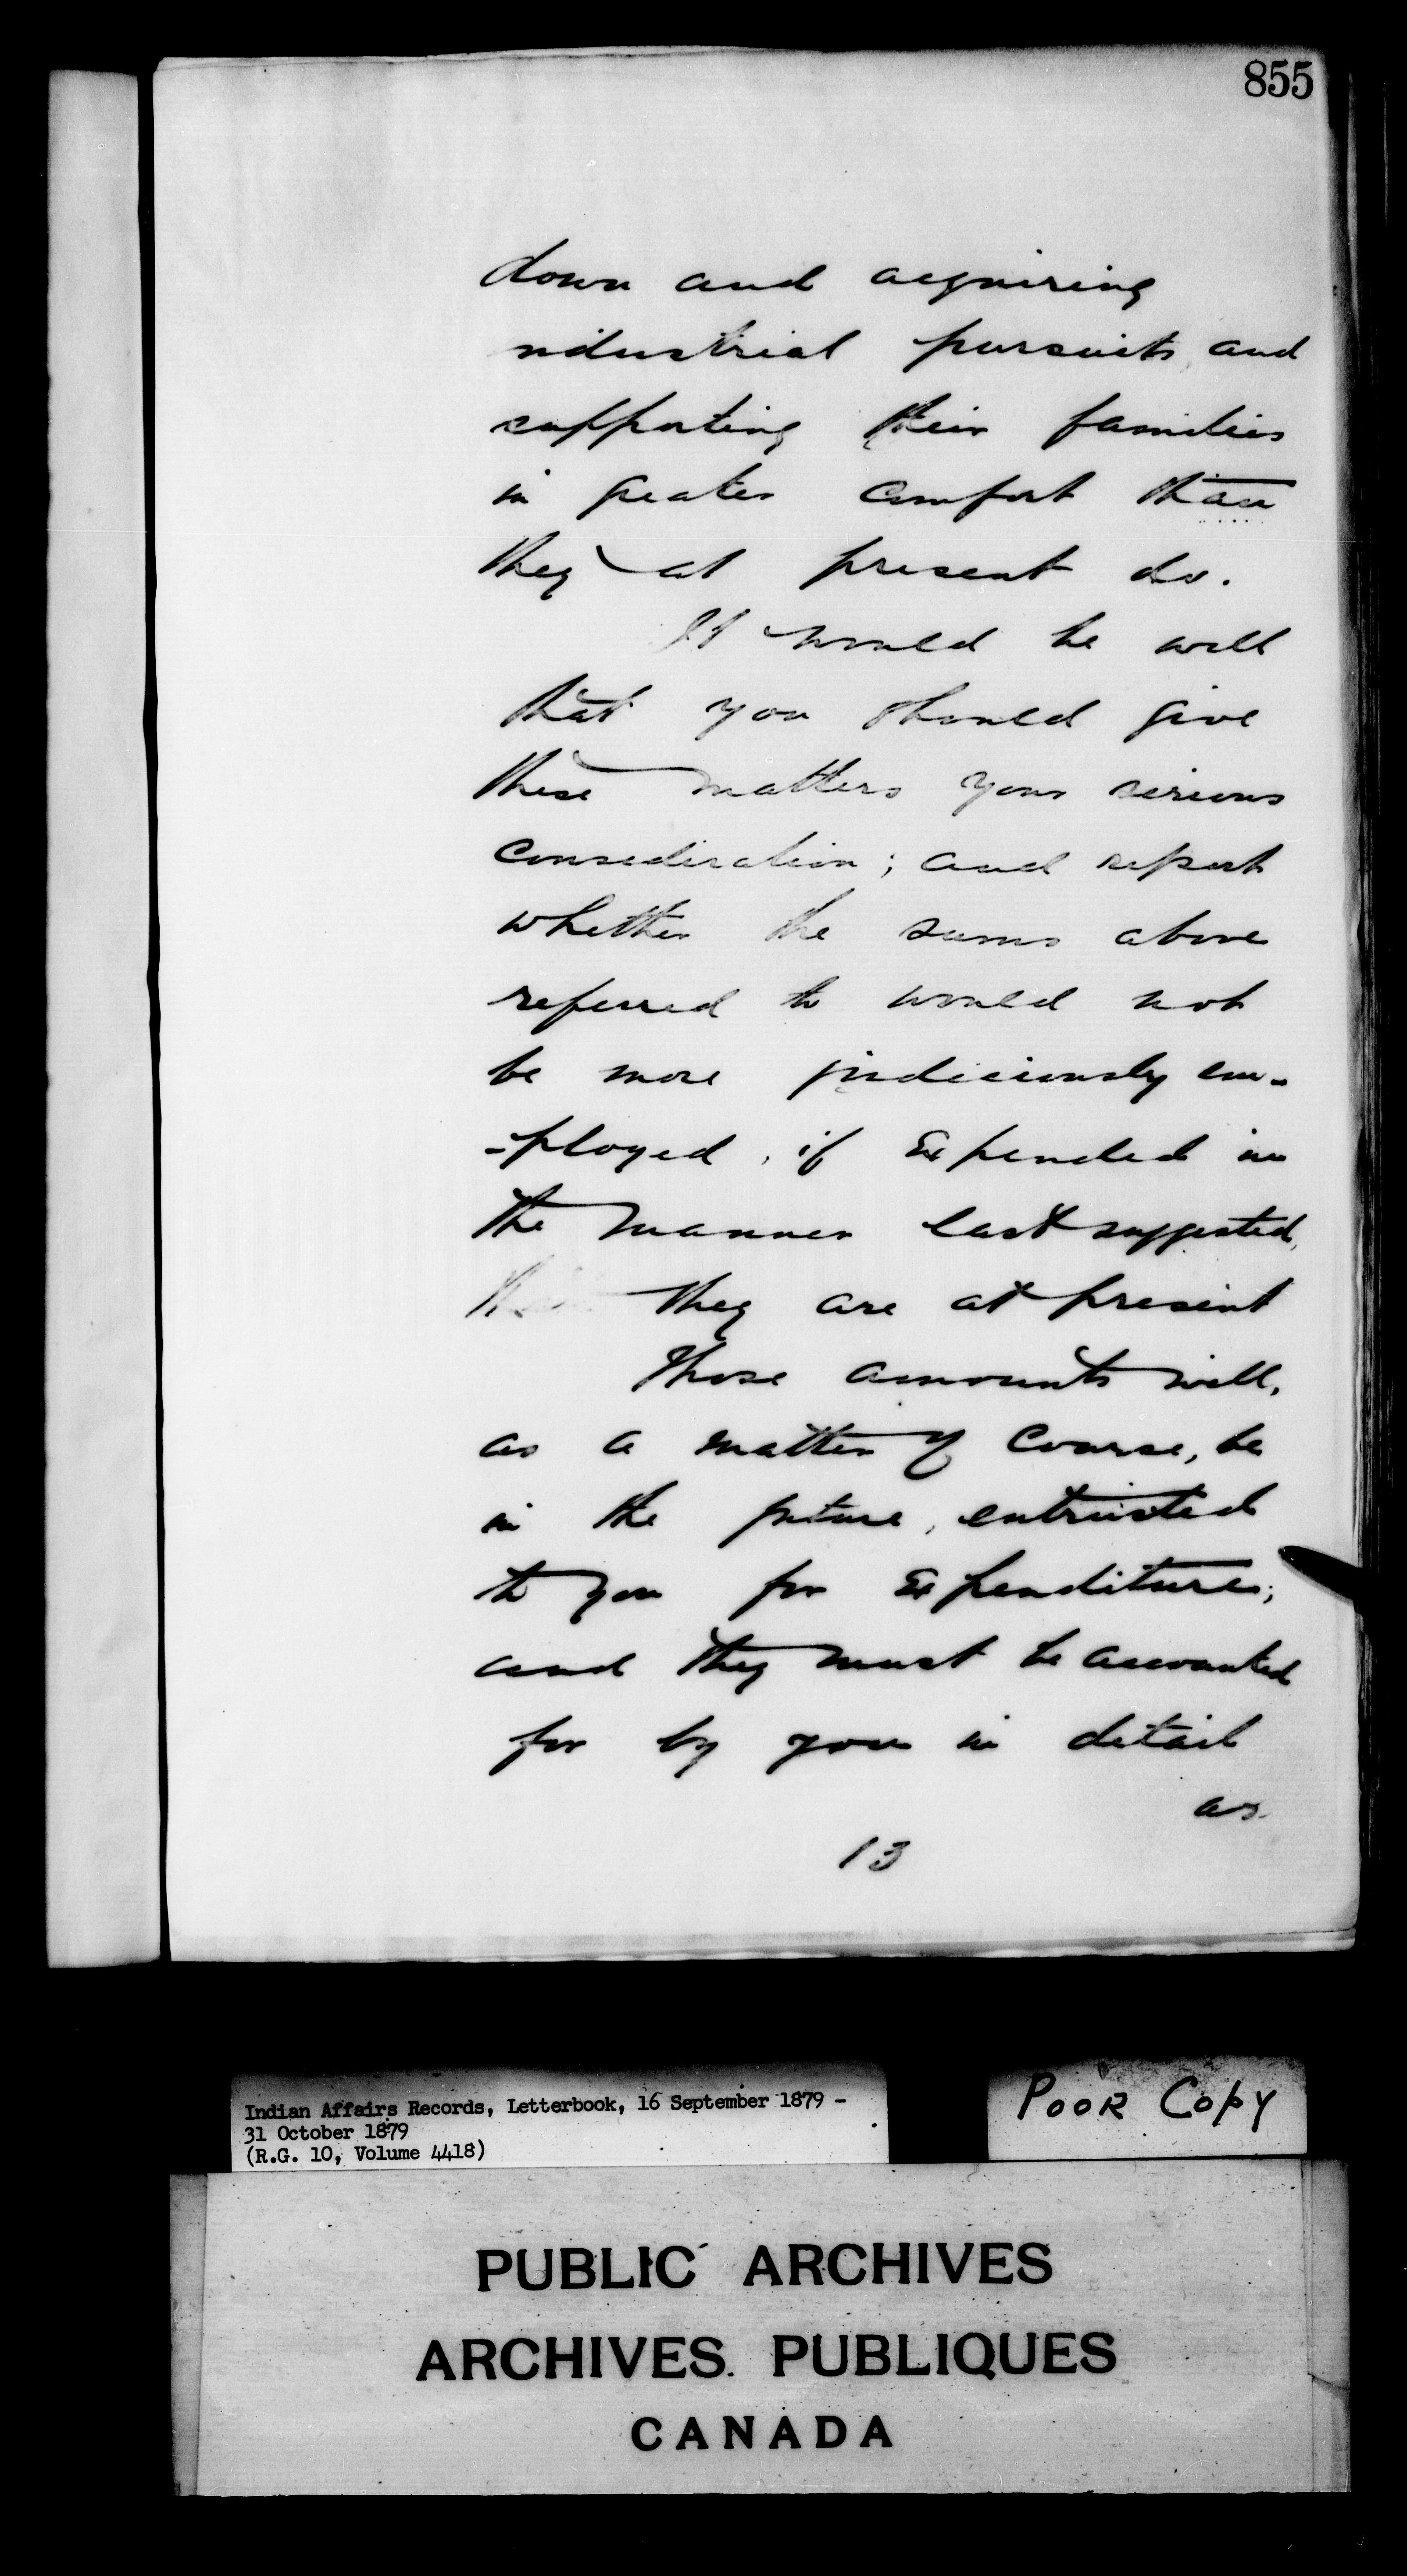 855
down and acquiring
industrial pursuits, and
supporting their families
in greater comfort than
they at present do.
It would be well
that you should give
these matters your serious
consideration; and report
whether the sums above
referred to would not
be more judiciously em-
-ployed, if Expended in
the manner last suggested,
than they are at present
Those amounts will,
as a matter of Course, be
in the future, entrusted
to you for Expenditure;
and they must be accounted
for by you in detail
as
13
Indian Affairs Records, Letterbook, 16 September 1879 -
31 October 1879
(R.G. 10, Volume 4418)
POOR COPY
PUBLIC ARCHIVES
ARCHIVES PUBLIQUES
CANADA